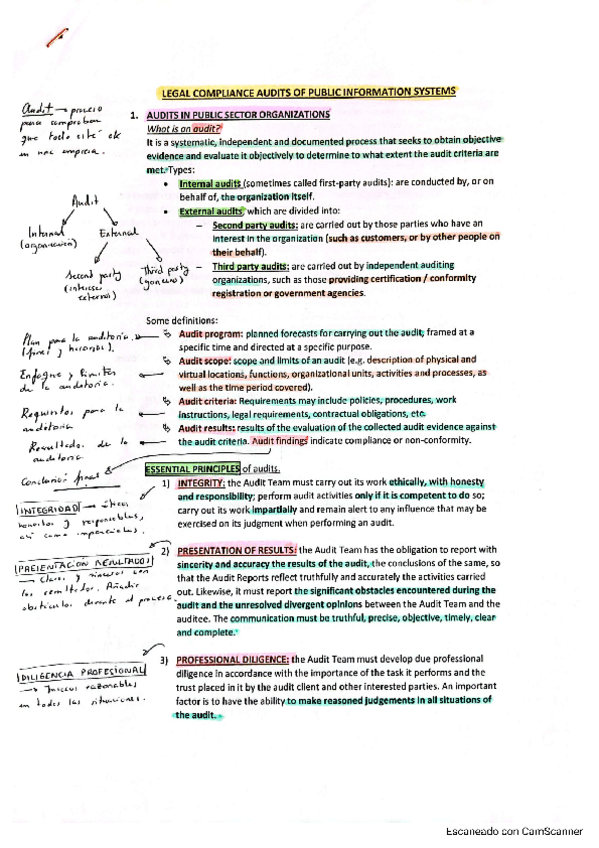 LEGAL COMPLIANCE AUDITS OF PUBLIC INFORMATION SYSTEMS
Audit → proceso
para comprobar
que todo esté ok
en una empresa.
1. AUDITS IN PUBLIC SECTOR ORGANIZATIONS
What is an audit?
It is a systematic, independent and documented process that seeks to obtain objective
evidence and evaluate it objectively to determine to what extent the audit criteria are
met. Types:
• Internal audits (sometimes called first-party audits): are conducted by, or on
behalf of, the organization itself.
• External audits, which are divided into:
– Second party audits: are carried out by those parties who have an
interest in the organization (such as customers, or by other people on
their behalf).
– Third party audits: are carried out by independent auditing
organizations, such as those providing certification / conformity
registration or government agencies.
Audit
Internal
(organización)
External
Second party
(interese
externos)
Third party
Some definitions:
Audit program: planned forecasts for carrying out the audit, framed at a
specific time and directed at a specific purpose.
Audit scope: scope and limits of an audit (e.g. description of physical and
virtual locations, functions, organizational units, activities and processes, as
well as the time period covered).
Audit criteria: Requirements may include policies, procedures, work
instructions, legal requirements, contractual obligations, etc.
Audit results: results of the evaluation of the collected audit evidence against
the audit criteria. Audit findings indicate compliance or non-conformity.
Plan para la auditoría
(fines y horarios).
Enfoque y límites
de la auditoría.
Requisitos para la
auditoría
Resultado de la
auditoría
Conclusión final
ESSENTIAL PRINCIPLES of audits.
1) INTEGRITY: the Audit Team must carry out its work ethically, with honesty
and responsibility; perform audit activities only if it is competent to do so;
carry out its work impartially and remain alert to any influence that may be
exercised on its judgment when performing an audit.
INTEGRIDAD → Éticos
honestos y responsables,
así como imparciales.
2) PRESENTATION OF RESULTS: the Audit Team has the obligation to report with
sincerity and accuracy the results of the audit, the conclusions of the same, so
that the Audit Reports reflect truthfully and accurately the activities carried
out. Likewise, it must report the significant obstacles encountered during the
audit and the unresolved divergent opinions between the Audit Team and the
auditee. The communication must be truthful, precise, objective, timely, clear
and complete.
PRESENTACION RESULTADOS
→ Claros y sinceros con
los resultados. Añadir
obstáculos durante el proceso.
3) PROFESSIONAL DILIGENCE: the Audit Team must develop due professional
diligence in accordance with the importance of the task it performs and the
trust placed in it by the audit client and other interested parties. An important
factor is to have the ability to make reasoned judgements in all situations of
the audit.
DILIGENCIA PROFESIONAL
→ Juicios razonables
en todas las situaciones.
Escaneado con CamScanner